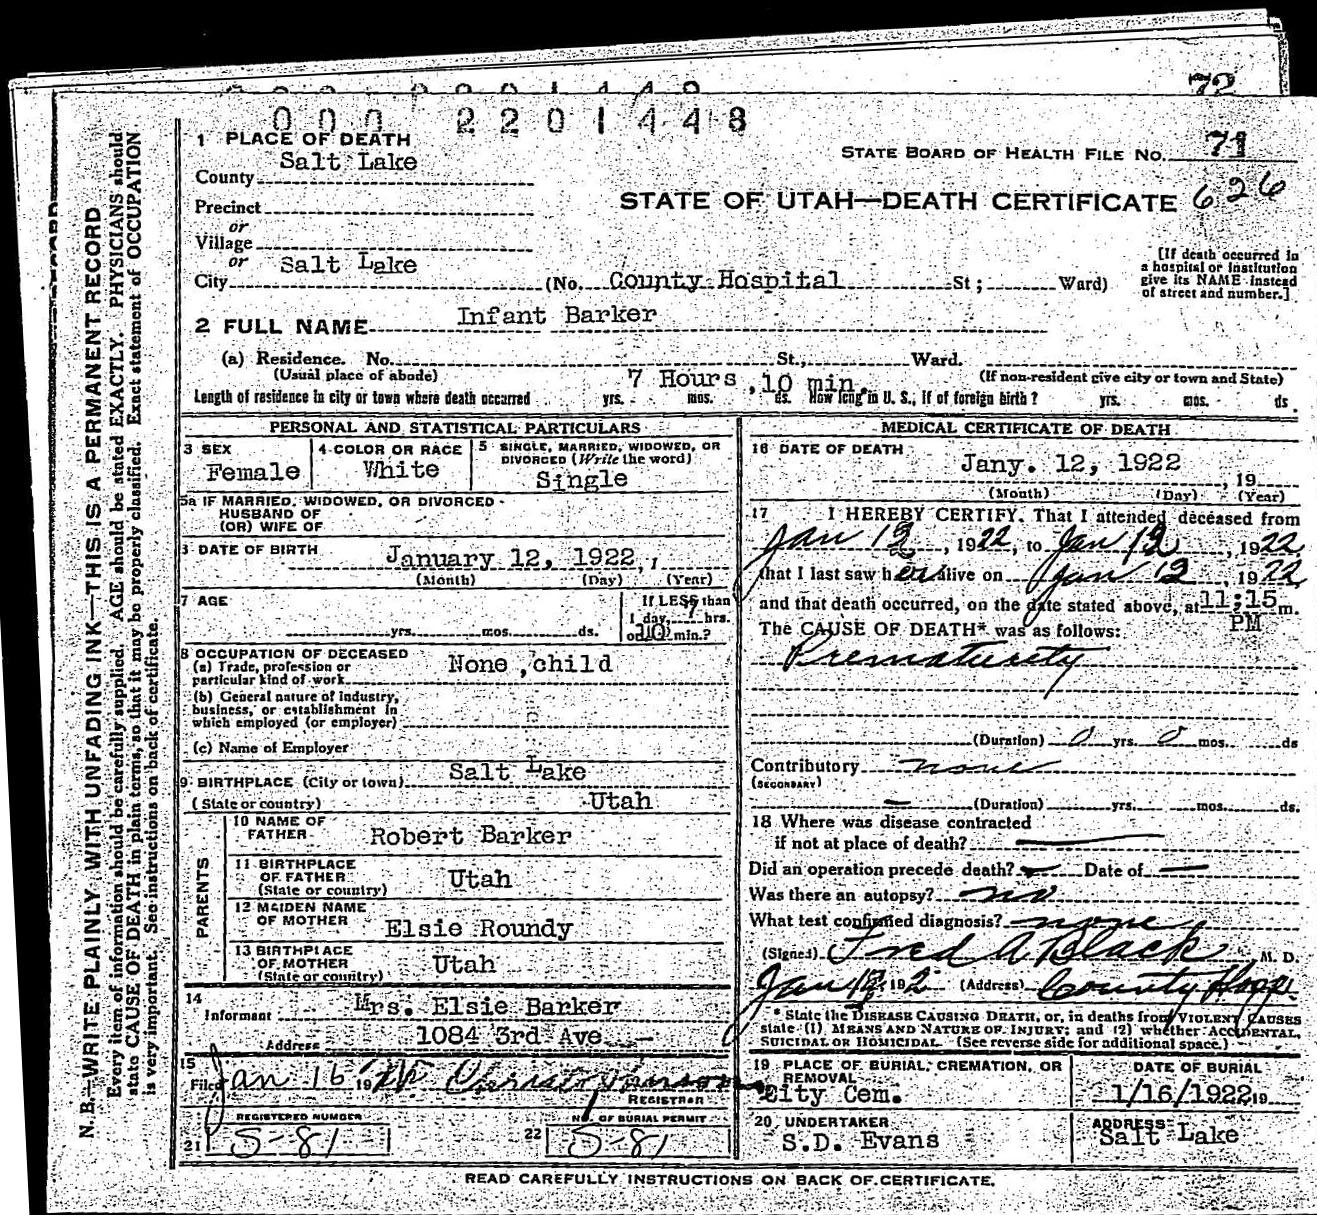 72
0 0 0 2 2 0 1 4 4 8
1 PLACE OF DEATH
STATE BOARD OF HEALTH FILE NO. 71
County Salt Lake
STATE OF UTAH—DEATH CERTIFICATE 626
Precinct
or
Village
or
City Salt Lake (No. County Hospital St; Ward)
[If death occurred in
a hospital or institution
give its NAME instead
of street and number.]
2 FULL NAME Infant Barker
(a) Residence. No. St., Ward.
(Usual place of abode)
(If non-resident give city or town and State)
7 Hours, 10 min.
Length of residence in city or town where death occurred yrs. mos. ds. How long in U. S., if of foreign birth? yrs. mos. ds.
PERSONAL AND STATISTICAL PARTICULARS
3 SEX
Female
4 COLOR OR RACE
White
5 SINGLE, MARRIED, WIDOWED, OR
DIVORCED (Write the word)
Single
5a IF MARRIED, WIDOWED, OR DIVORCED
HUSBAND OF
(OR) WIFE OF
DATE OF BIRTH
January 12, 1922, 1
(Month) (Day) (Year)
7 AGE
yrs. mos. ds.
If LESS than
1 day, 7 hrs.
or 10 min.?
8 OCCUPATION OF DECEASED
(a) Trade, profession or
particular kind of work None, child
(b) General nature of industry,
business, or establishment in
which employed (or employer)
(c) Name of Employer
9 BIRTHPLACE (City or town) Salt Lake
(State or country) Utah
PARENTS
10 NAME OF
FATHER Robert Barker
11 BIRTHPLACE
OF FATHER
(State or country) Utah
12 MAIDEN NAME
OF MOTHER Elsie Roundy
13 BIRTHPLACE
OF MOTHER
(State or country) Utah
14
Informant Mrs. Elsie Barker
Address 1084 3rd Ave
15
Filed Jan 16 19
REGISTRAR
REGISTERED NUMBER
21 S-81
NO. OF BURIAL PERMIT
22 S-81
MEDICAL CERTIFICATE OF DEATH
16 DATE OF DEATH
Jany. 12, 1922
, 19
(Month) (Day) (Year)
17 I HEREBY CERTIFY, That I attended deceased from
Jan 12, 1922, to Jan 12, 1922
that I last saw her alive on Jan 12, 1922
and that death occurred, on the date stated above, at 11;15 m.
PM
The CAUSE OF DEATH* was as follows:
Prematurity
(Duration) 0 yrs. 0 mos. ds
Contributory none
(SECONDARY)
(Duration) yrs. mos. ds.
18 Where was disease contracted
if not at place of death?
Did an operation precede death? Date of
Was there an autopsy? no
What test confirmed diagnosis? none
(Signed) Fred A Black M. D.
Jan 12 192 (Address) County Hosp.
* State the DISEASE CAUSING DEATH, or, in deaths from VIOLENT CAUSES
state (1) MEANS AND NATURE OF INJURY; and (2) whether ACCIDENTAL,
SUICIDAL OR HOMICIDAL. (See reverse side for additional space.)
19 PLACE OF BURIAL, CREMATION, OR
REMOVAL
City Cem.
DATE OF BURIAL
1/16/1922 19
20 UNDERTAKER
S.D. Evans
ADDRESS
Salt Lake
READ CAREFULLY INSTRUCTIONS ON BACK OF CERTIFICATE.
N. B.—WRITE PLAINLY WITH UNFADING INK—THIS IS A PERMANENT RECORD
Every item of information should be carefully supplied. AGE should be stated EXACTLY. PHYSICIANS should
state CAUSE OF DEATH in plain terms, so that it may be properly classified. Exact statement of OCCUPATION
is very important. See instructions on back of certificate.